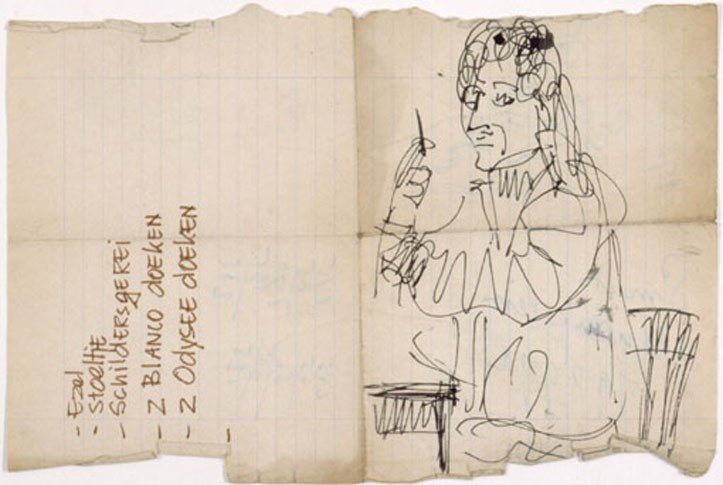 - Ezel
- Stoeltje
- Schildersgerei
- 2 BLANCO doeken
- 2 Odysee doeken
-